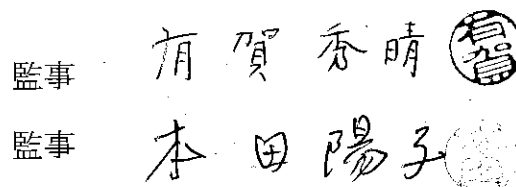 監事 有賀秀晴
監事 本田陽子